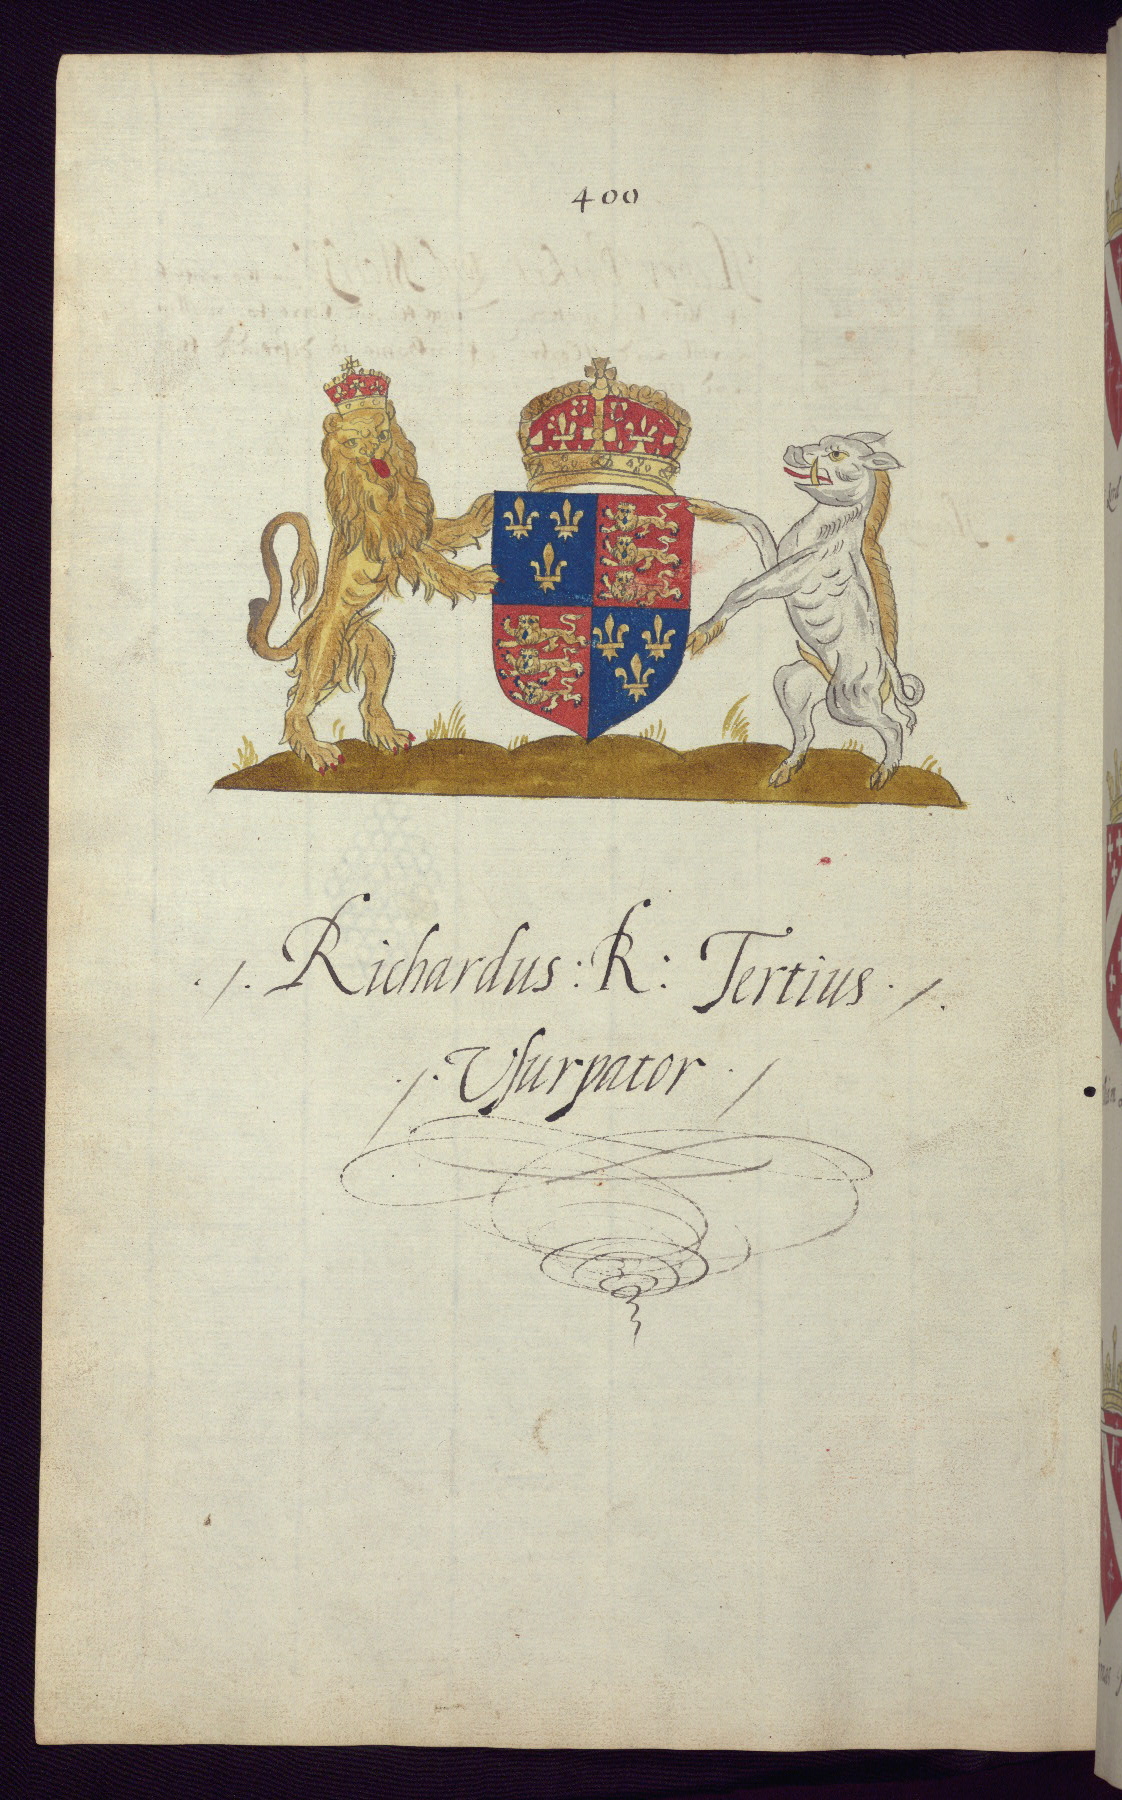 400
./. Richardus : R : Tertius ./.
./. Vsurpator ./